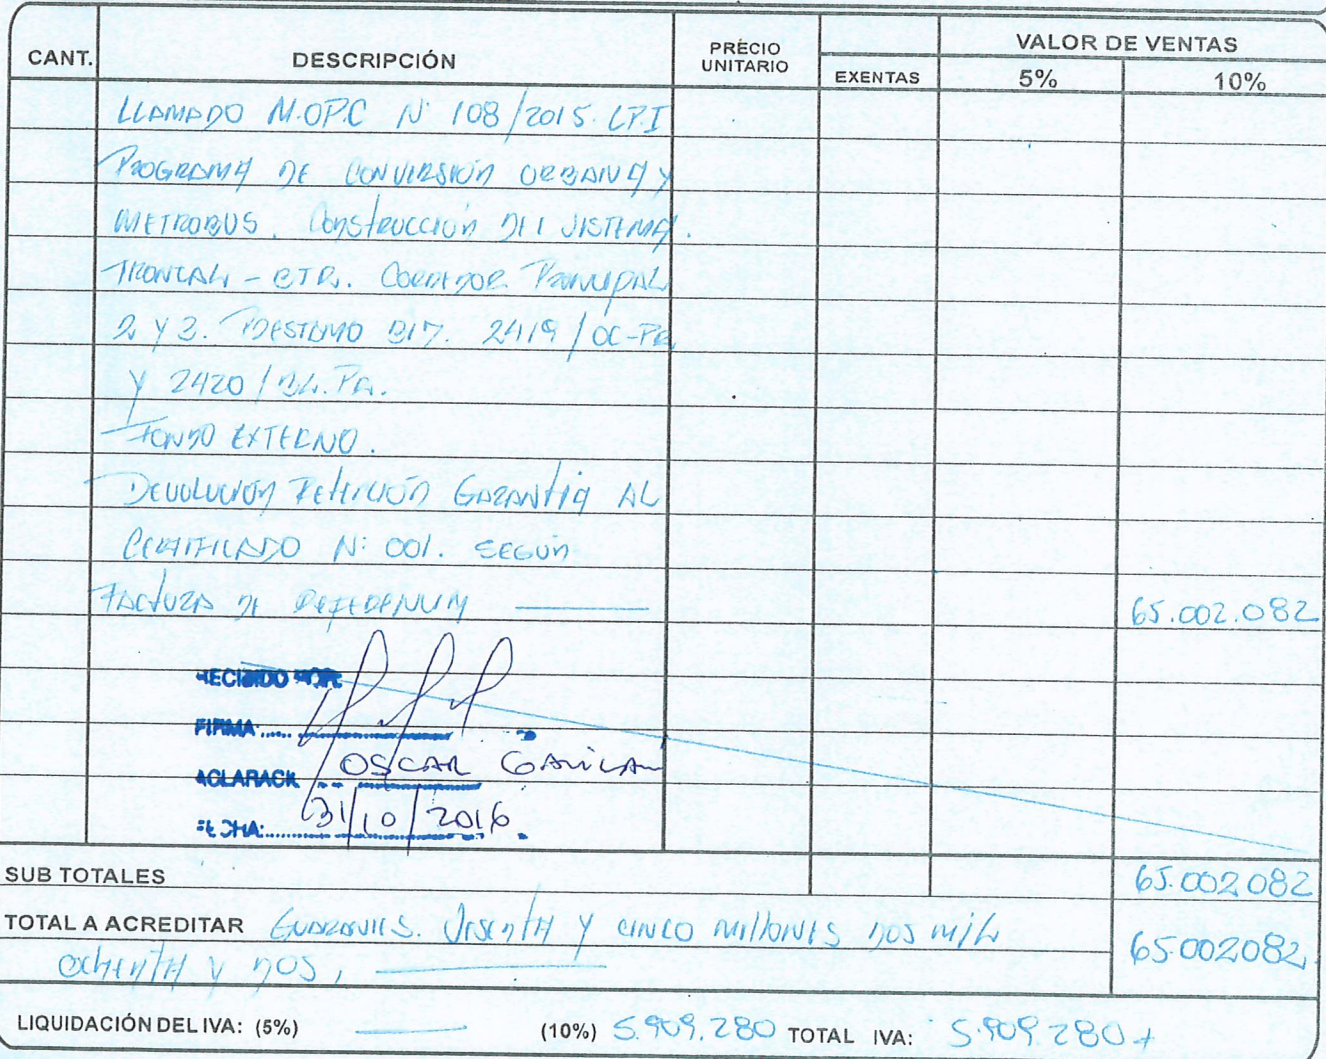 CANT. DESCRIPCIÓN PRECIO UNITARIO EXENTAS VALOR DE VENTAS 5% 10%
LLAMADO M.OP.C N° 108/2015. LP.I
PROGRAMA DE CONVERSIÓN URBANA Y
METROBUS. Construcción DEL SISTEMA.
TRONCAL - BTR. CORREDOR PRINCIPAL
2 Y 3. PRESTAMO BID. 2419/OC-PR
Y 2420/BL.PR.
FONDO EXTERNO.
DEVOLUCIÓN RETENCIÓN GARANTIA AL
CERTIFICADO N: 001. SEGÚN
FACTURA DE REFERENCIA 65.002.082
RECIBIDO POR:
FIRMA:
ACLARACI OSCAR GAVILAN
FECHA: 31/10/2016
SUB TOTALES 65.002.082
TOTAL A ACREDITAR GUARANIES. SESENTA Y CINCO MILLONES DOS MIL 65.002082.
OCHENTA Y DOS,
LIQUIDACIÓN DEL IVA: (5%) (10%) 5.909.280 TOTAL IVA: 5.909.280